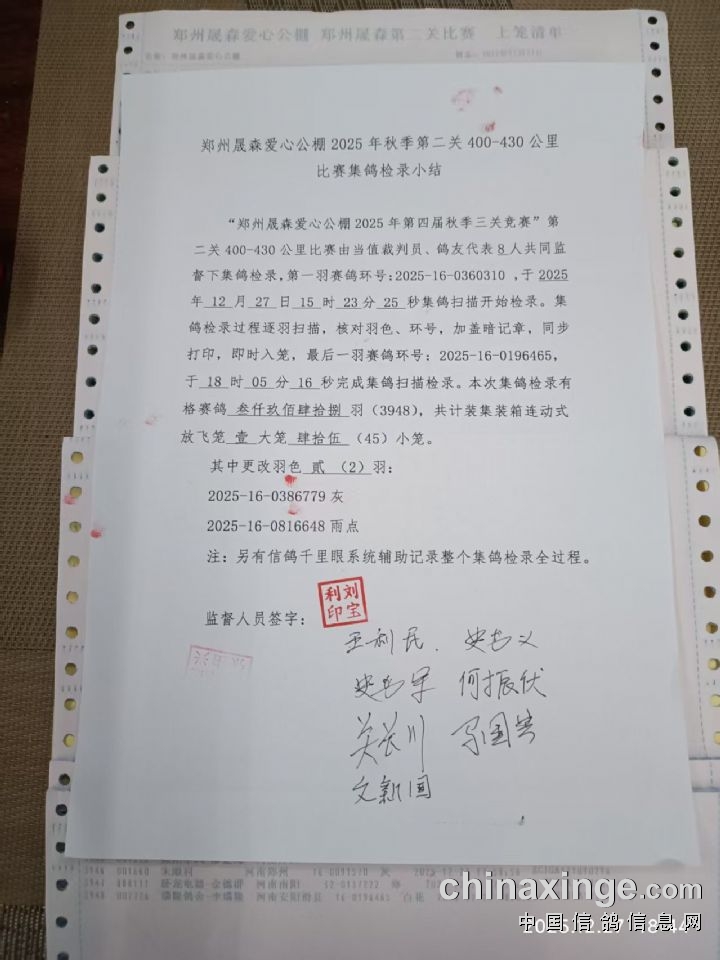 郑州晟森爱心公棚 郑州晟森第二关比赛 上笼清单
郑州晟森爱心公棚2025年秋季第二关400-430公里
比赛集鸽检录小结
“郑州晟森爱心公棚2025年第四届秋季三关竞赛”第
二关400-430公里比赛由当值裁判员、鸽友代表8人共同监
督下集鸽检录,第一羽赛鸽环号:2025-16-0360310,于2025
年12月27日15时23分25秒集鸽扫描开始检录。集
鸽检录过程逐羽扫描，核对羽色、环号，加盖暗记章，同步
打印，即时入笼，最后一羽赛鸽环号：2025-16-0196465，
于18时05分16秒完成集鸽扫描检录。本次集鸽检录有
格赛鸽 叁仟玖佰肆拾捌 羽（3948），共计装集装箱连动式
放飞笼 壹 大笼 肆拾伍 （45）小笼。
其中更改羽色 贰 （2）羽：
2025-16-0386779灰
2025-16-0816648雨点
注：另有信鸽千里眼系统辅助记录整个集鸽检录全过程。
监督人员签字：
刘宝利印
何振伏
文新国
chinaxinge.com
中国信鸽信息网